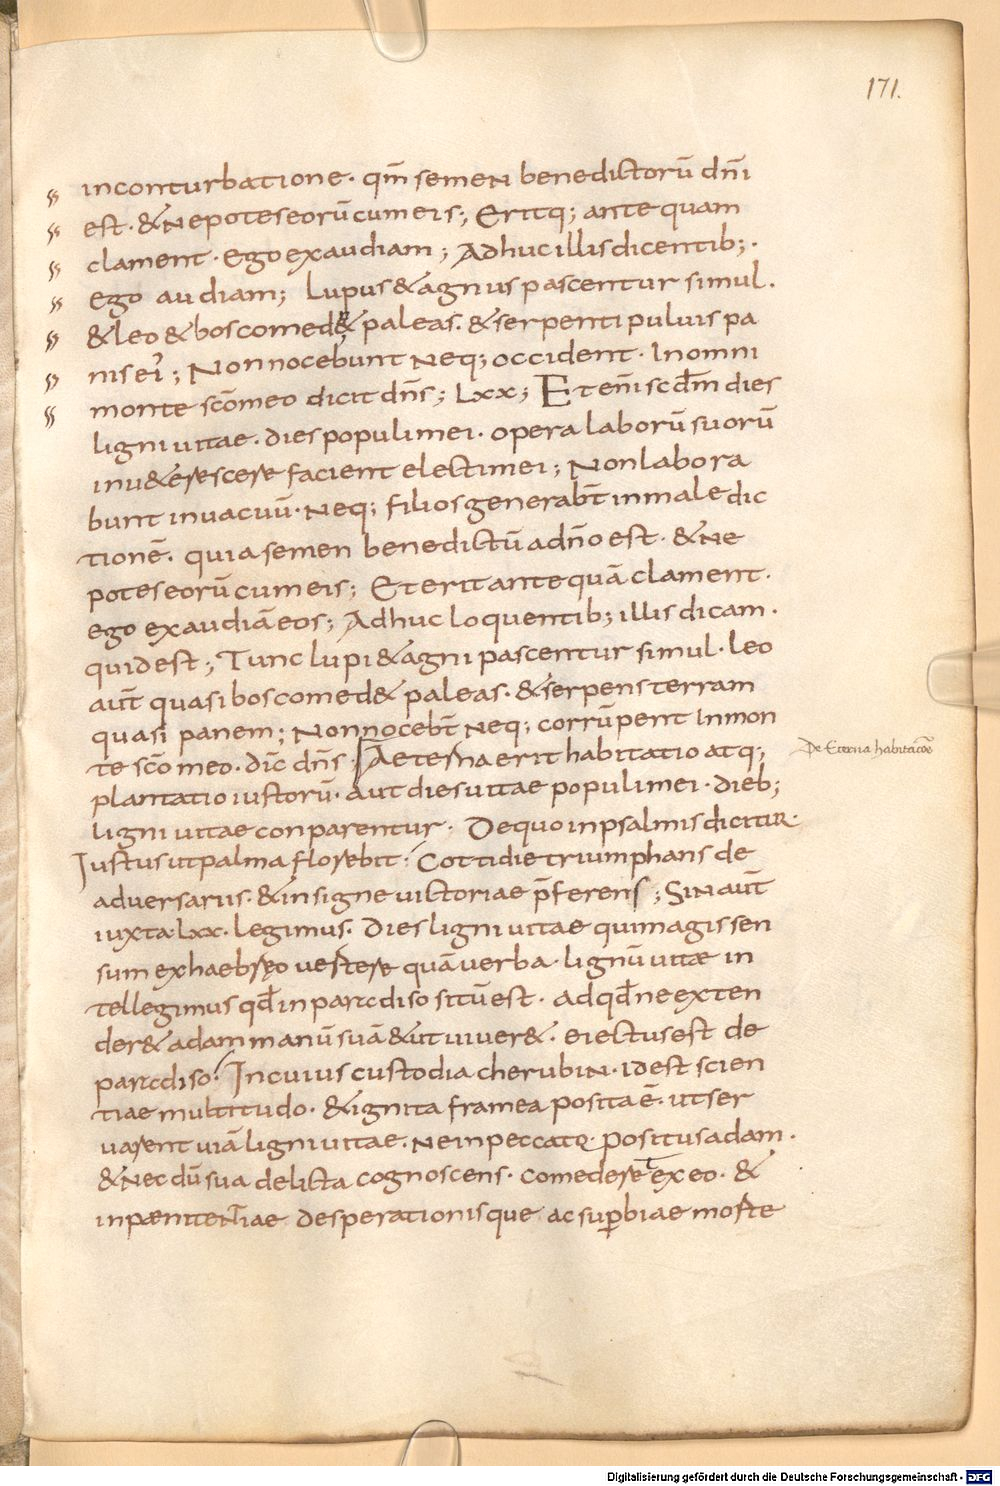 171.
in conturbatione. qm̅ semen benedictoru̅ dn̅i
est. & nepotes eoru̅ cum eis; Eritq; ante quam
clament. ego exaudiam; Adhuc illis dicentib;.
ego audiam; Lupus & agnus pascentur simul.
& leo & bos comed& paleas. & serpenti puluis pa
nis ei'; Non nocebunt neq; occident. In omni
monte sc̅o meo dicit dn̅s; Lxx; Et eni̅ sc̅dm̅ dies
ligni uitae. dies populi mei. opera laboru̅ suoru̅
inu&erescere facient electi mei; Non labora
bunt in uacuu̅. neq; filios generabt̅ in maledic
tione̅. quia semen benedictu̅ a dn̅o est. & ne
potes eoru̅ cum eis; Et erit antequa̅ clament.
ego exaudia̅ eos; Adhuc loquentib; illis dicam.
quid est; Tunc lupi & agni pascentur simul. leo
aut̅ quasi bos comed& paleas. & serpens terram
quasi panem; Non nocebt̅ neq; corru̅pent in mon
te sc̅o meo. dic̅ dn̅s. Aeterna erit habitatio atq;
De Eterna habitac̅oe
plantatio iustoru̅. aut dies uitae populi mei. dieb;
ligni uitae conparentur. De quo in psalmis dicitur.
Iustus ut palma florebit. Cottidie triumphans de
aduersariis. & insigne uictoriae p̅ferens; Sin aut̅
iuxta. lxx. legimus. Dies ligni uitae qui magis sen
sum ex haebręo uertere qua̅ uerba. lignu̅ uitæ in
tellegimus qd̅ in paradiso situ̅ est. ad qd̅ ne exten
der& adam manu̅ sua̅ & ut uiuer&. eiectus est de
paradiso. In cuius custodia cherubin. id est scien
tiae multitudo. & ignita framea posita e̅. ut ser
uarent uia̅ ligni uitae. ne in peccatq. positus adam.
& nec du̅ sua delicta cognoscens. comederet ex eo. &
inpænitentiae desperationisque ac sup̲biae morte
Digitalisierung gefördert durch die Deutsche Forschungsgemeinschaft - DFG